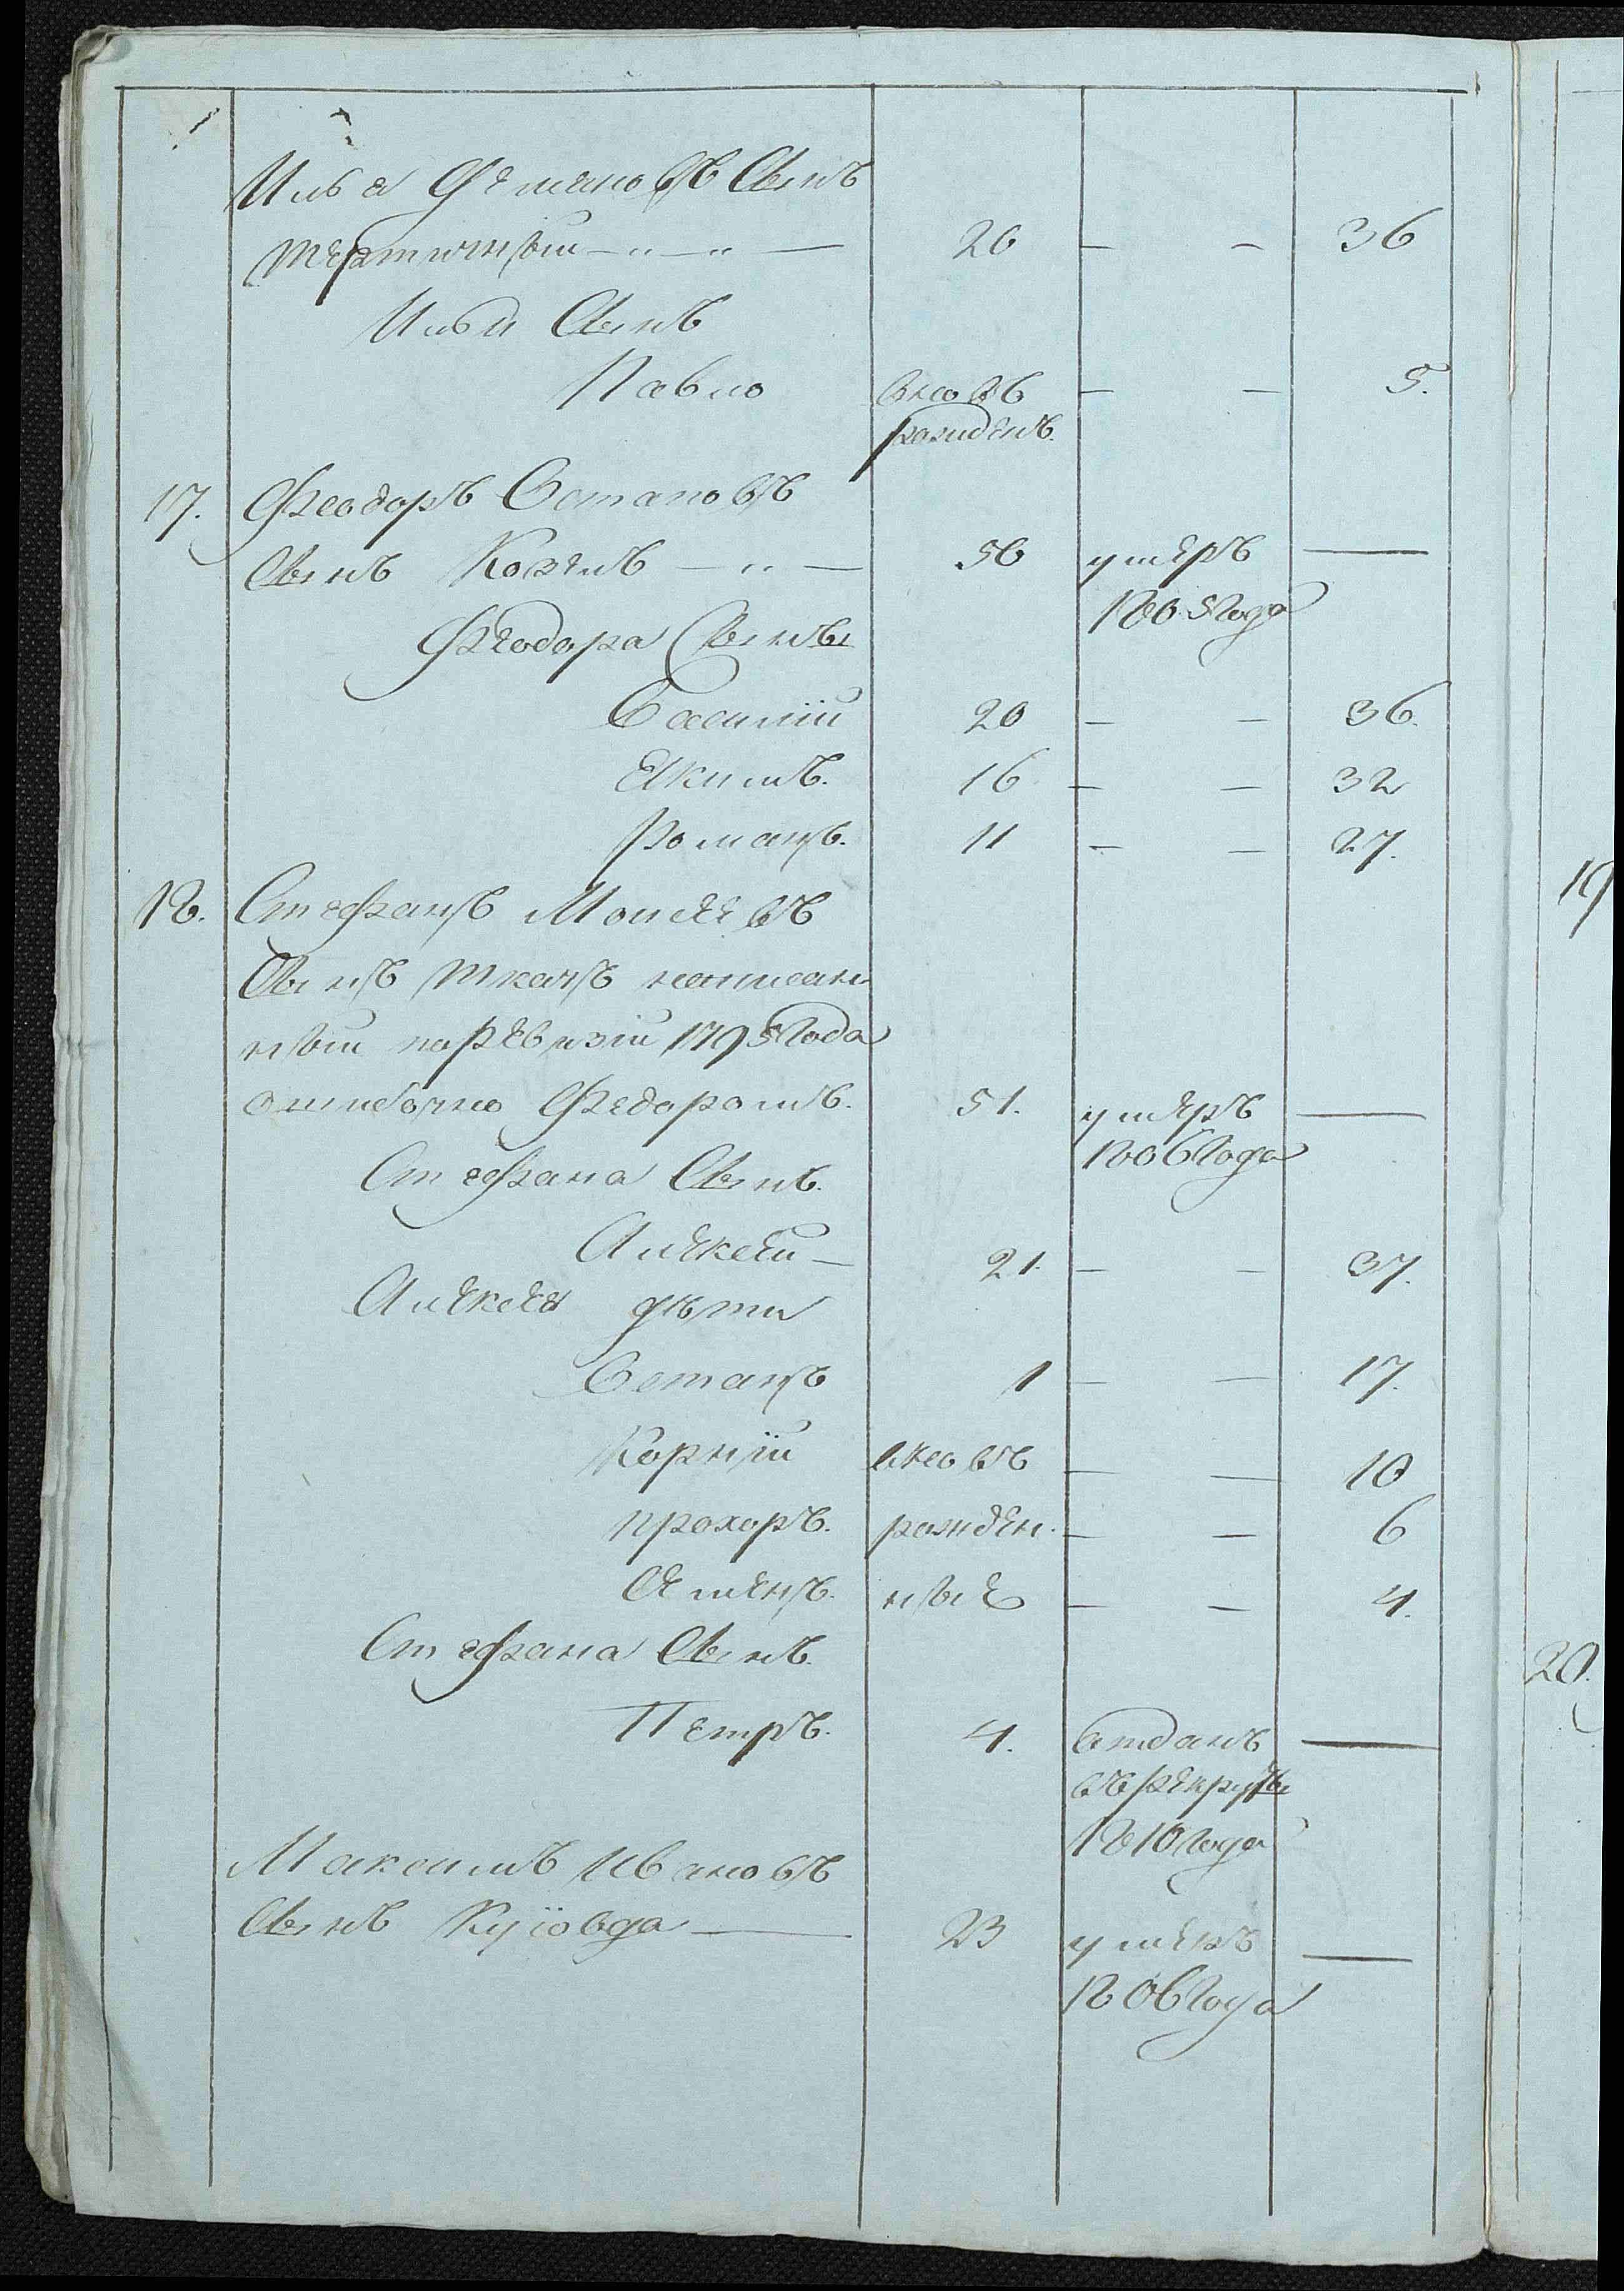 Илья Фемановъ Сынъ
Тертичный — " — " — 20 — — 36
Ильи Сынъ
Павло вновь — — 5.
рожденъ.
17. Феодоръ Остаповъ
Сынъ Козелъ — " — 56 умеръ —
1805 Года
Феодора Сыны
Василій 20 — — 36.
Екимъ. 16 — — 32
Романъ. 11 — — 27.
18. Стефанъ Моисеевъ
Сынъ Ткачъ написан
ный поревизіи 1795 Года
ошибочно Федоромъ. 51. умеръ —
1806 Года
Стефана Сынъ.
Алексей — 21. — — 37.
Алексея дѣти
Остапъ 1 — — 17.
Корній вновь — — 10
прохоръ. рожден. — — 6
Семенъ. ные — — 4.
Стефана Сынъ.
Петръ. 4. отданъ —
въ рекруты
1810 Года
Максимъ Ивановъ
Сынъ Куіовда — 23 умеръ —
1806 Года
19
20.